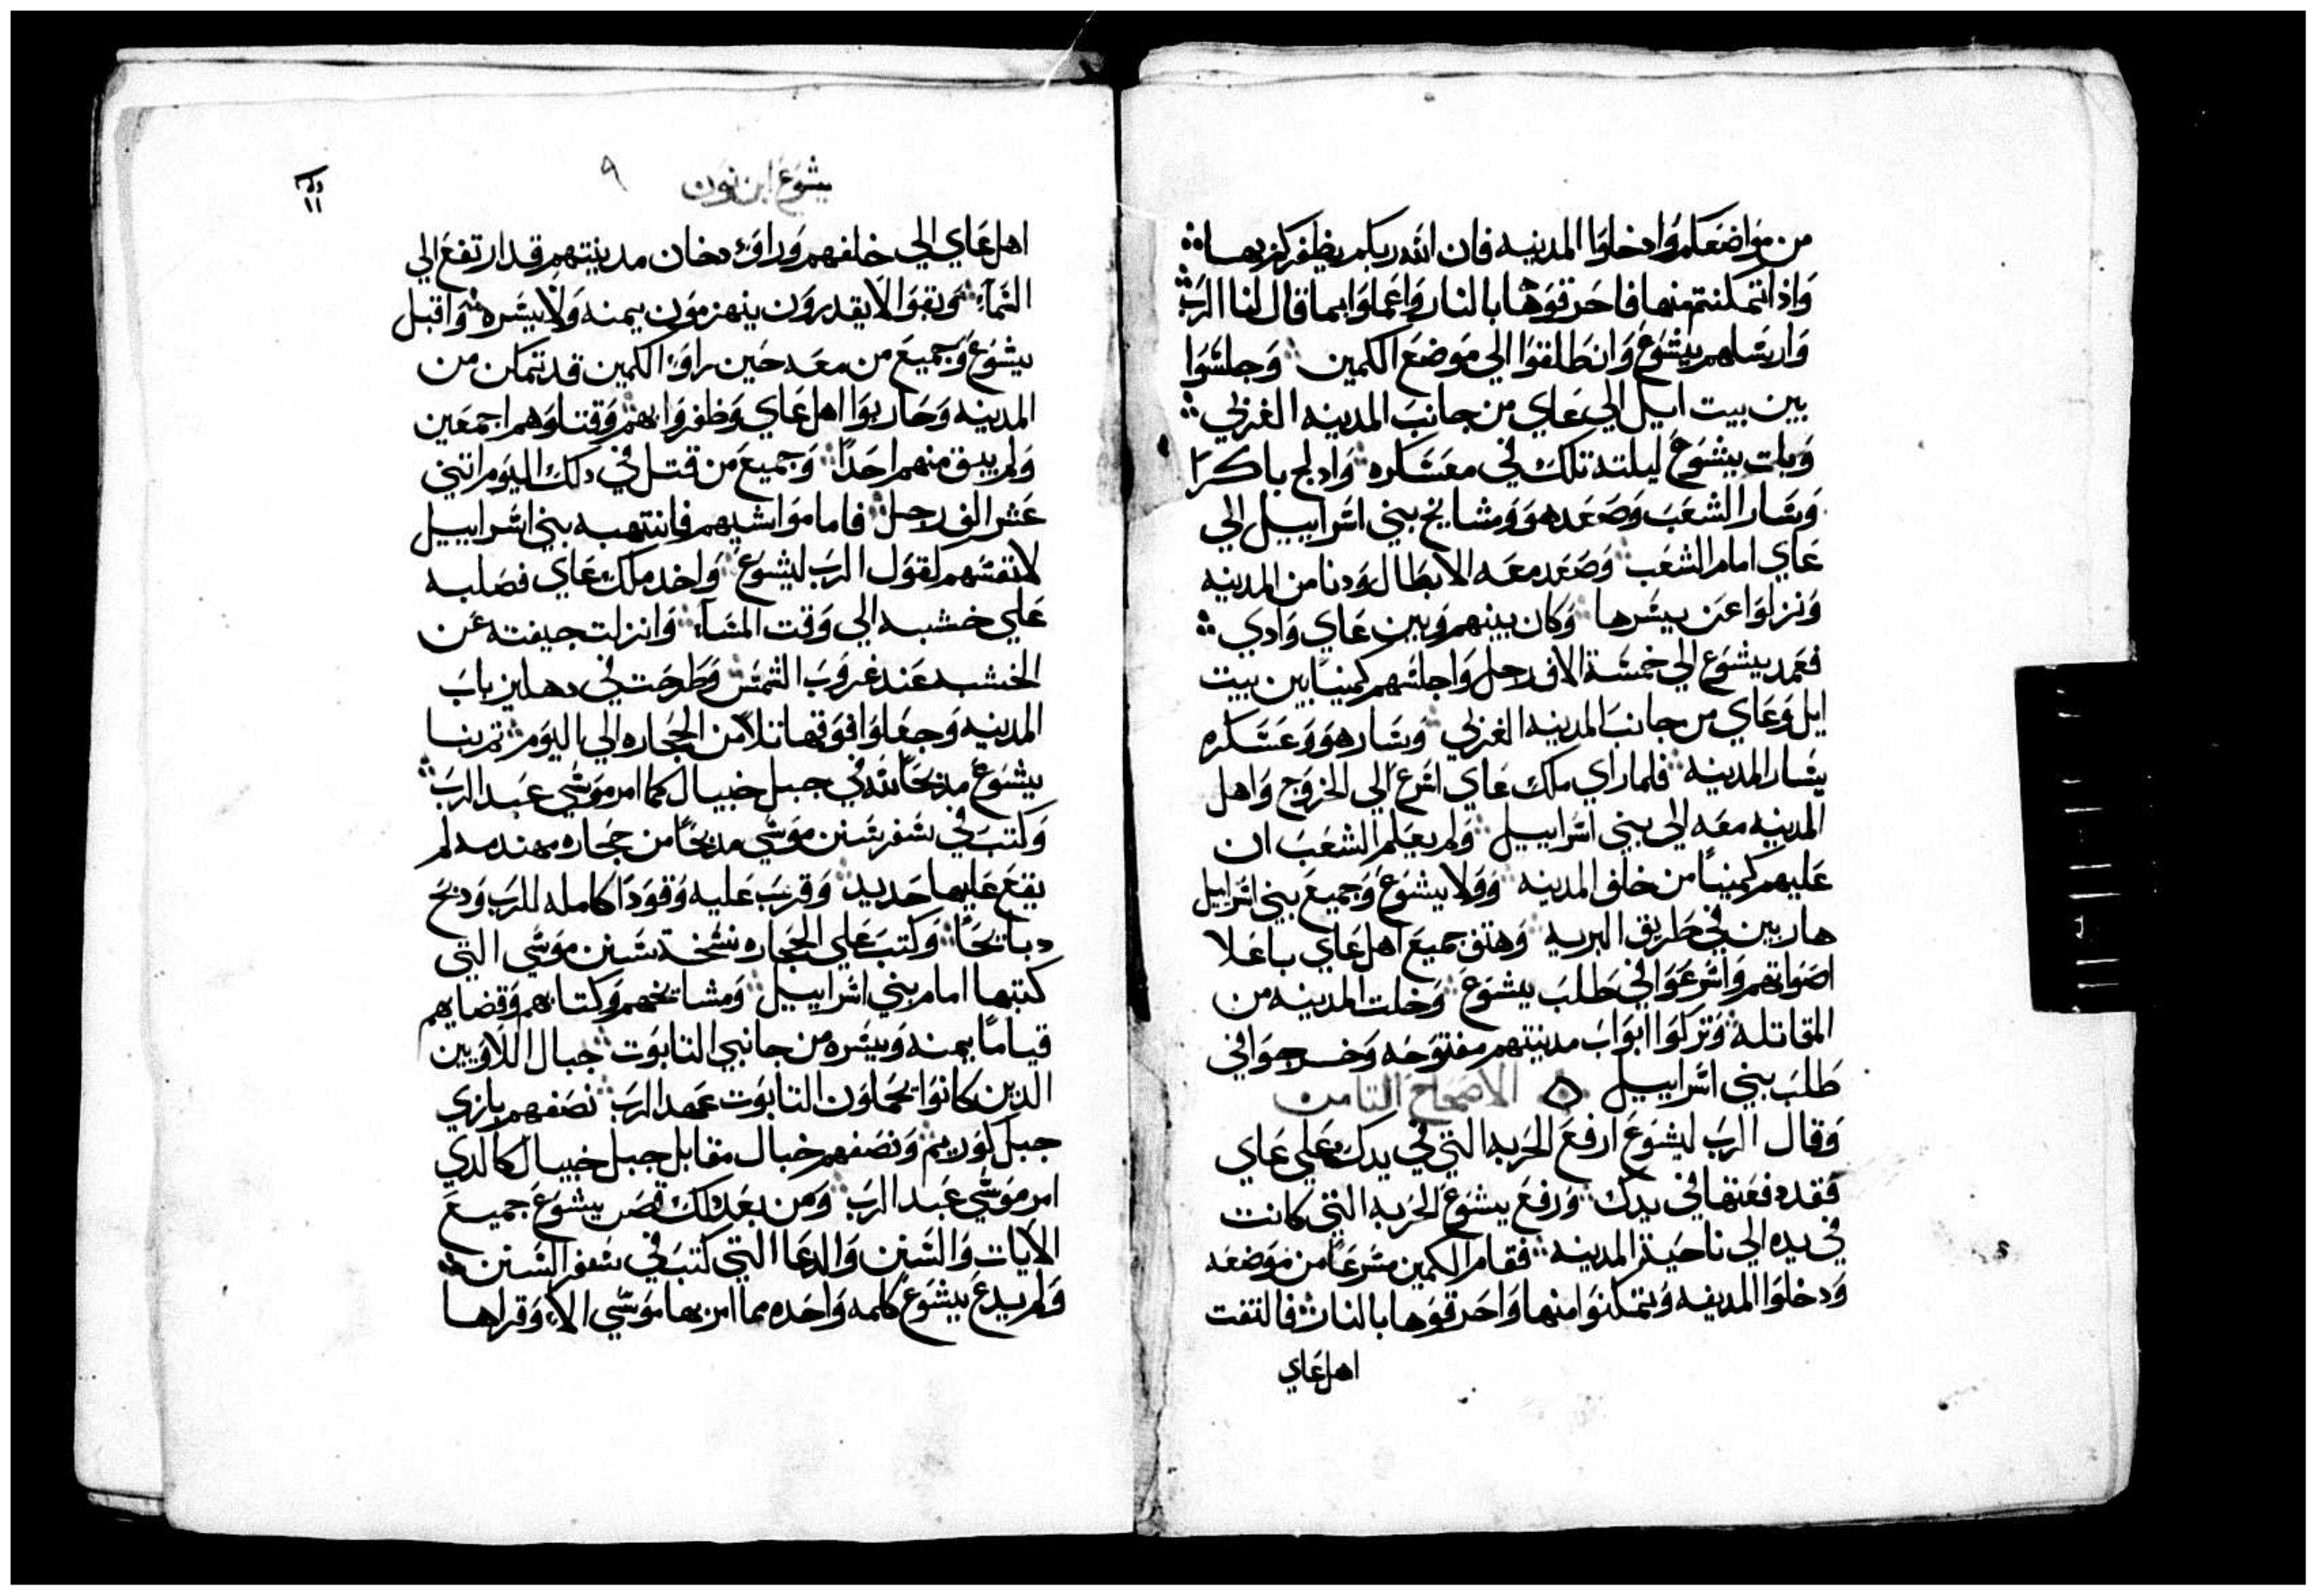 من مواضعكم وادخلوا المدينه فان الله ربكم يظفركم بها
واذا تمكنتم منها فاحرقوها بالنار واعملوا بما قال لنا الرب
وارسلهم يشوع وانطلقوا الي موضع الكمين وجلسوا
بين بيت ايل الي عاي من جانب المدينه الغزلي
وبات يشوع ليلته تلك في معسكره وادلج باكرا
وسار الشعب وصعد هو ومشايخ بني اسراييل الي
عاي امام الشعب وصعد معه الابطال ودنا من المدينه
ونزلوا عن يسرها وكان بينهم وبين عاي وادي
فعمد يشوع الي خمسة الاف رجل واجلسهم كمينا بين بيت
ايل وعاي من جانب المدينه الغزلي وسار هو وعسكره
يسار المدينه فلما راي ملك عاي اسرع الي الخروج واهل
المدينه معه الي بني اسراييل ولم يعلم الشعب ان
عليهم كمينا من خلف المدينه وولا يشوع وجميع بني اسراييل
هاربين في طريق البريه وهتف جميع اهل عاي باعلا
اصواتهم واسرعوا في طلب يشوع وخلت المدينه من
المقاتله وتركوا ابواب مدينتهم مفتوحه وخرجوا في
طلب بني اسراييل الاصحاح التامن
وقال الرب ليشوع ارفع الحربه التي في يدك علي عاي
فقد دفعتها في يدك ورفع يشوع الحربه التي كانت
في يده الي ناحية المدينه فقام الكمين مسرعا من موضعه
ودخلوا المدينه وتمكنوا منها واحرقوها بالنار فالتفت
اهل عاي
يشوع ابن نون ٩
اهل عاي الي خلفهم وراوا دخان مدينتهم قد ارتفع الي
السماء وبقوا لا يقدرون ينهزمون يمنه ولا يسره واقبل
يشوع وجميع من معه حين راوا الكمين قد تمكن من
المدينه وحاربوا اهل عاي وظفروا بهم وقتلوهم اجمعين
ولم يبق منهم احدا وجميع من قتل في دلك اليوم اتني
عشر الف رجل فاما مواشيهم فانتهبه بني اسراييل
لانفسهم لقول الرب ليشوع واخد ملك عاي فصلبه
علي خشبه الي وقت المساء وانزلت جيفته عن
الخشبه عند غروب الشمس وطرحت في دهليز باب
المدينه وجعلوا فوقها تلا من الحجاره الي اليوم تم بنا
يشوع مدبحا لله في جبل خيبال كما امر موسي عبد الرب
وكتب في سفر سنن موسي مدبحا من حجاره مهندمه لم
يقع عليها حديد وقرب عليه وقودا كامله للرب ودبح
دبايحا وكتب علي الحجاره نسخة سنن موسي التي
كتبها امام بني اسراييل ومشايخهم وكتابهم وقضايهم
قياما يمنه ويسره من جانبي التابوت جبال اللاويين
الدين كانوا يحملون التابوت عهد الرب نصفهم بازي
جبل كوريم ونصفهم خبال مقابل جبل خيبال كالدي
امر موسي عبد الرب ومن بعد دلك قص يشوع جميع
الايات والسنن والدعا التي كتب في سفر السنن
ولم يدع يشوع كلمه واحده مما امر بها موسي الا وقراها